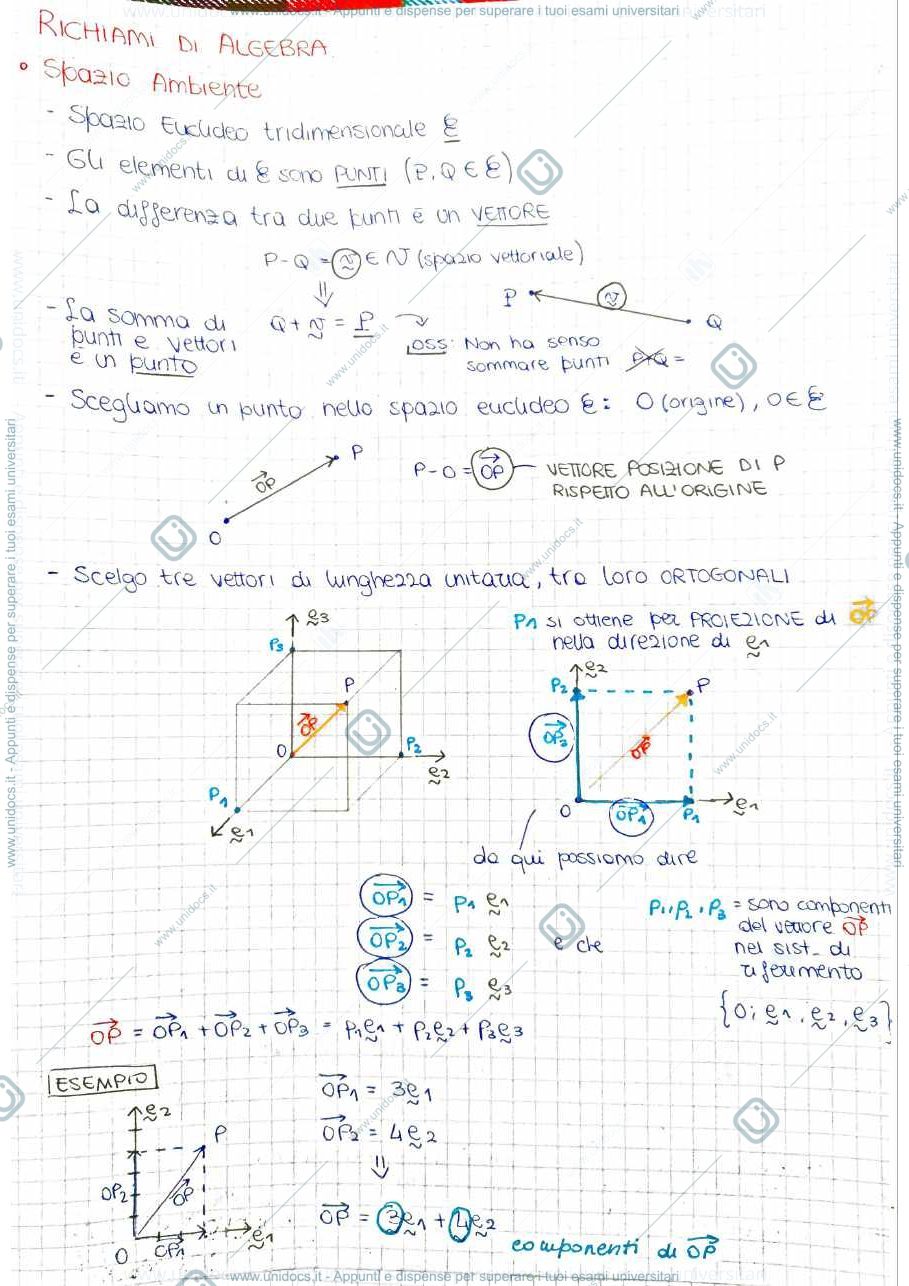 www.unidocs.it - Appunti e dispense per superare i tuoi esami universitari
RICHIAMI DI ALGEBRA
• Spazio Ambiente
- Spazio Euclideo tridimensionale ℰ
- Gli elementi di ℰ sono PUNTI (P, Q ∈ ℰ)
- La differenza tra due punti è un VETTORE
P - Q = v ∈ V (spazio vettoriale)
⇓
- La somma di punti e vettori è un punto
Q + v = P
OSS: Non ha senso sommare punti P+Q =
P v Q
- Scegliamo un punto nello spazio euclideo ℰ: O (origine), O ∈ ℰ
O OP P
P - O = OP VETTORE POSIZIONE DI P
RISPETTO ALL'ORIGINE
- Scelgo tre vettori di lunghezza unitaria, tra loro ORTOGONALI
e3
P3
P
OP
O
P2
e2
P1
e1
P1 si ottiene per PROIEZIONE di OP
nella direzione di e1
e2
P2
P
OP2
OP
O
OP1
P1
e1
da qui possiamo dire
OP1 = P1 e1
OP2 = P2 e2 e che
OP3 = P3 e3
P1, P2, P3 = sono componenti
del vettore OP
nel sist. di
riferimento
{O; e1, e2, e3}
OP = OP1 + OP2 + OP3 = P1e1 + P2e2 + P3e3
ESEMPIO
e2
P
OP2
OP
O
OP1
e1
OP1 = 3e1
OP2 = 4e2
⇓
OP = 3e1 + 4e2
componenti di OP
www.unidocs.it - Appunti e dispense per superare i tuoi esami universitari